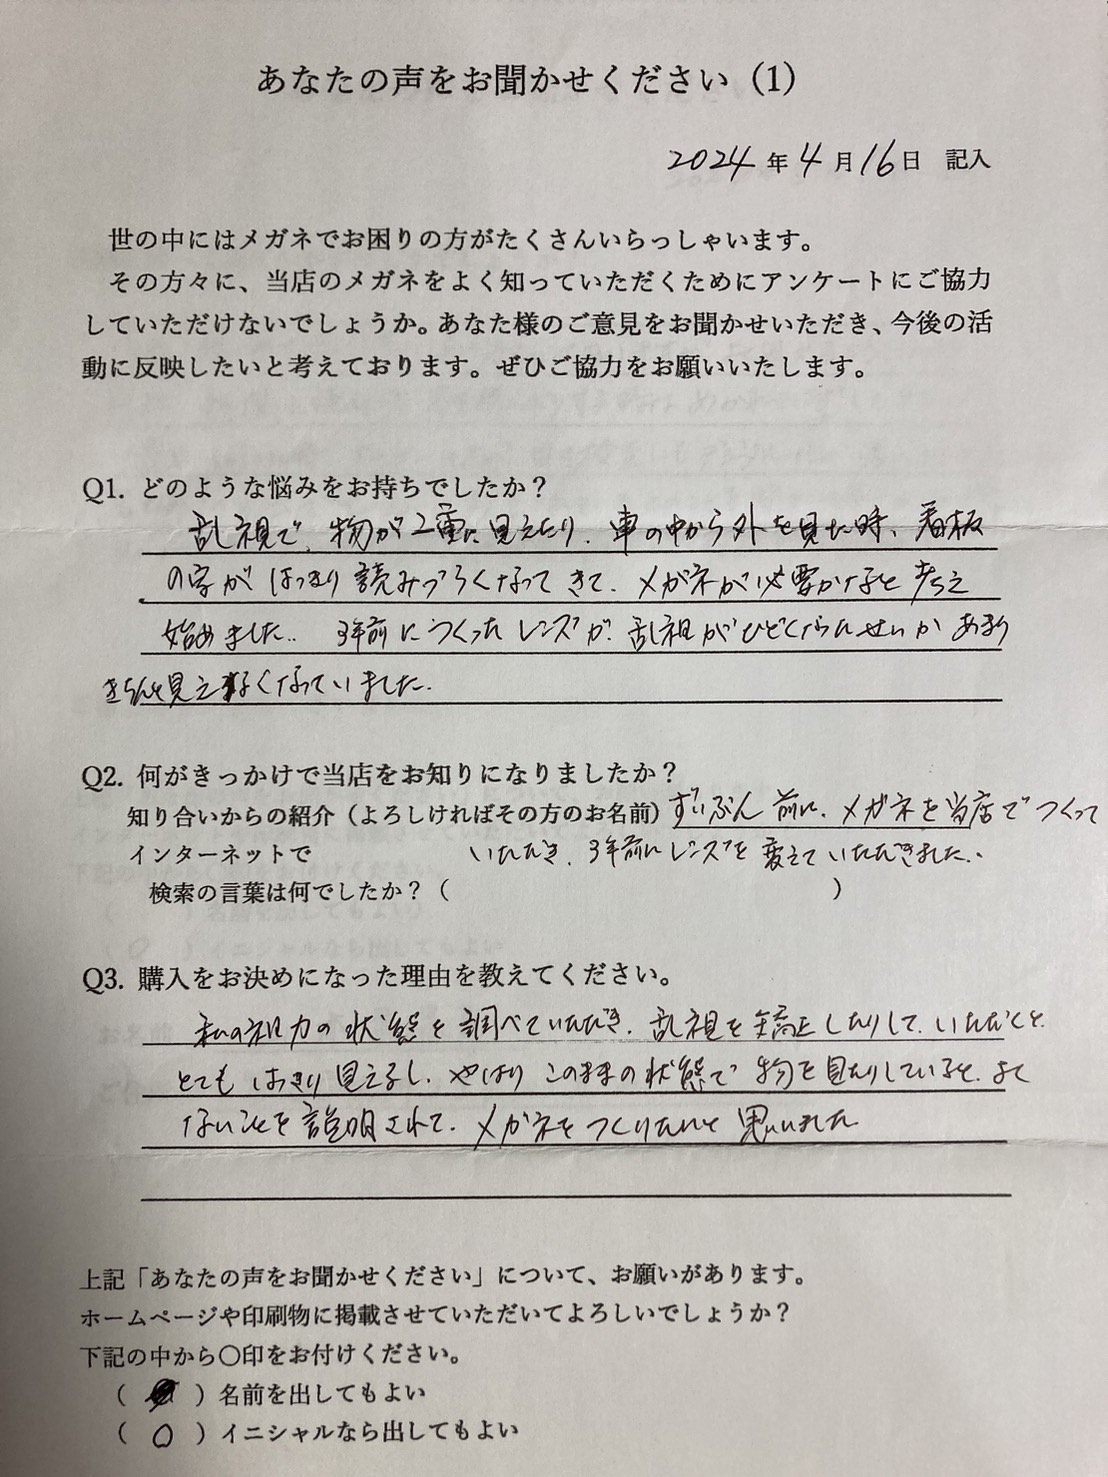 あなたの声をお聞かせください（1）
2024年4月16日 記入
世の中にはメガネでお困りの方がたくさんいらっしゃいます。
その方々に、当店のメガネをよく知っていただくためにアンケートにご協力
していただけないでしょうか。あなた様のご意見をお聞かせいただき、今後の活
動に反映したいと考えております。ぜひご協力をお願いいたします。
Q1. どのような悩みをお持ちでしたか？
乱視で、物が2重に見えたり、車の中から外を見た時、看板
の字がはっきり読みづらくなってきて、メガネが必要かなと考え
始めました。3年前につくったレンズが、乱視がひどくなったせいかあまり
きちんと見えなくなっていました。
Q2. 何がきっかけで当店をお知りになりましたか？
知り合いからの紹介（よろしければその方のお名前）ずいぶん前に、メガネを当店でつくって
インターネットで いただき、3年前にレンズを変えていただきました。
検索の言葉は何でしたか？（ ）
Q3. 購入をお決めになった理由を教えてください。
私の視力の状態を調べていただき、乱視を矯正したりして、いただくと、
とてもはっきり見えるし、やはりこのままの状態で物を見たりしていると、よく
ないことを説明されて、メガネをつくりたいと思いました
上記「あなたの声をお聞かせください」について、お願いがあります。
ホームページや印刷物に掲載させていただいてよろしいでしょうか？
下記の中から〇印をお付けください。
（ ）名前を出してもよい
（ 〇 ）イニシャルなら出してもよい